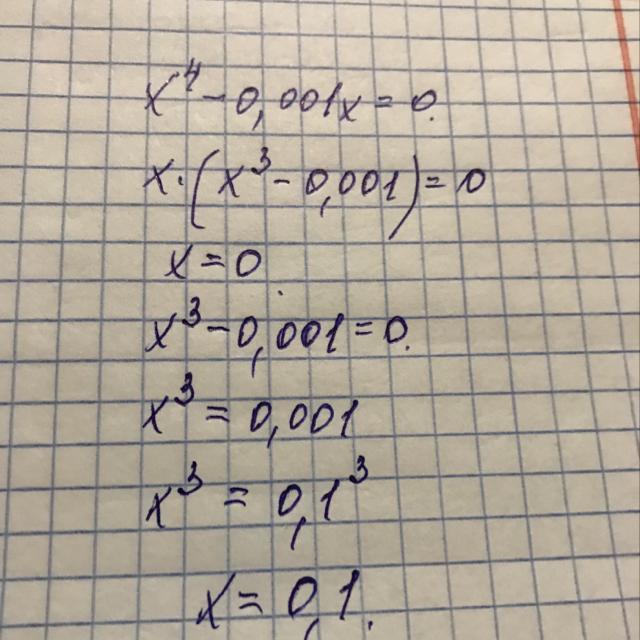 x⁴ - 0,001x = 0.
x · (x³ - 0,001) = 0
x = 0
x³ - 0,001 = 0.
x³ = 0,001
x³ = 0,1³
x = 0,1.